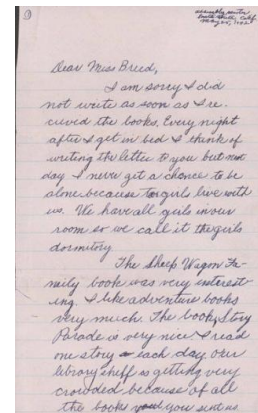 Assembly Center
Santa Anita, Calif.
May 25, 1942
Dear Miss Breed,
I am sorry I did
not write as soon as I re-
cieved the books. Every night
after I get in bed I think of
writing the letter to you but next
day I never get a chance to be
alone because two girls live with
us. We have all girls in our
room so we call it the girls
dormitory
The Sheep Wagon Fa-
mily book was very interest
ing. I like adventure books
very much. The book, Story
Parade is very nice. I read
one story each day. Our
library shelf is getting very
crowded because of all
the books you sent us